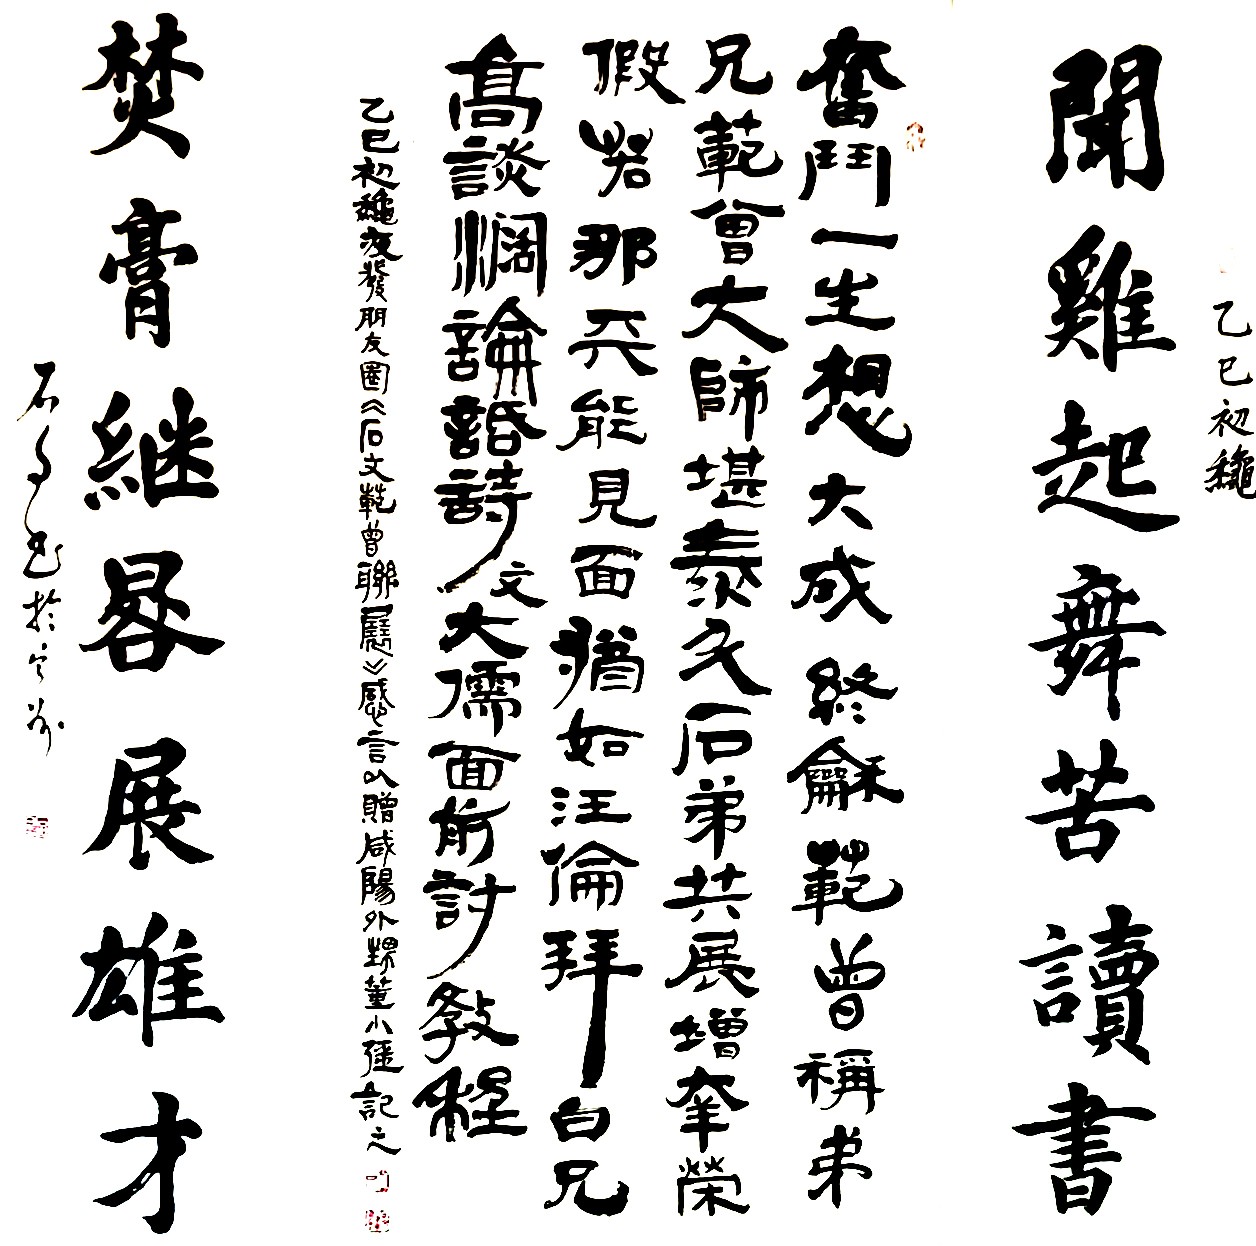 乙巳初龝
聞雞起舞苦讀書
奮鬥一生想大成終龢範曾稱弟
兄範曾大師堪泰文石弟共展增峯榮
假若那天能見面猶如汪倫拜白兄
高談濶論話詩文大儒面前討教程
乙巳初龝夜發朋友圈《石文範曾聯展》感言以贈咸陽外甥董小強記之
焚膏継晷展雄才